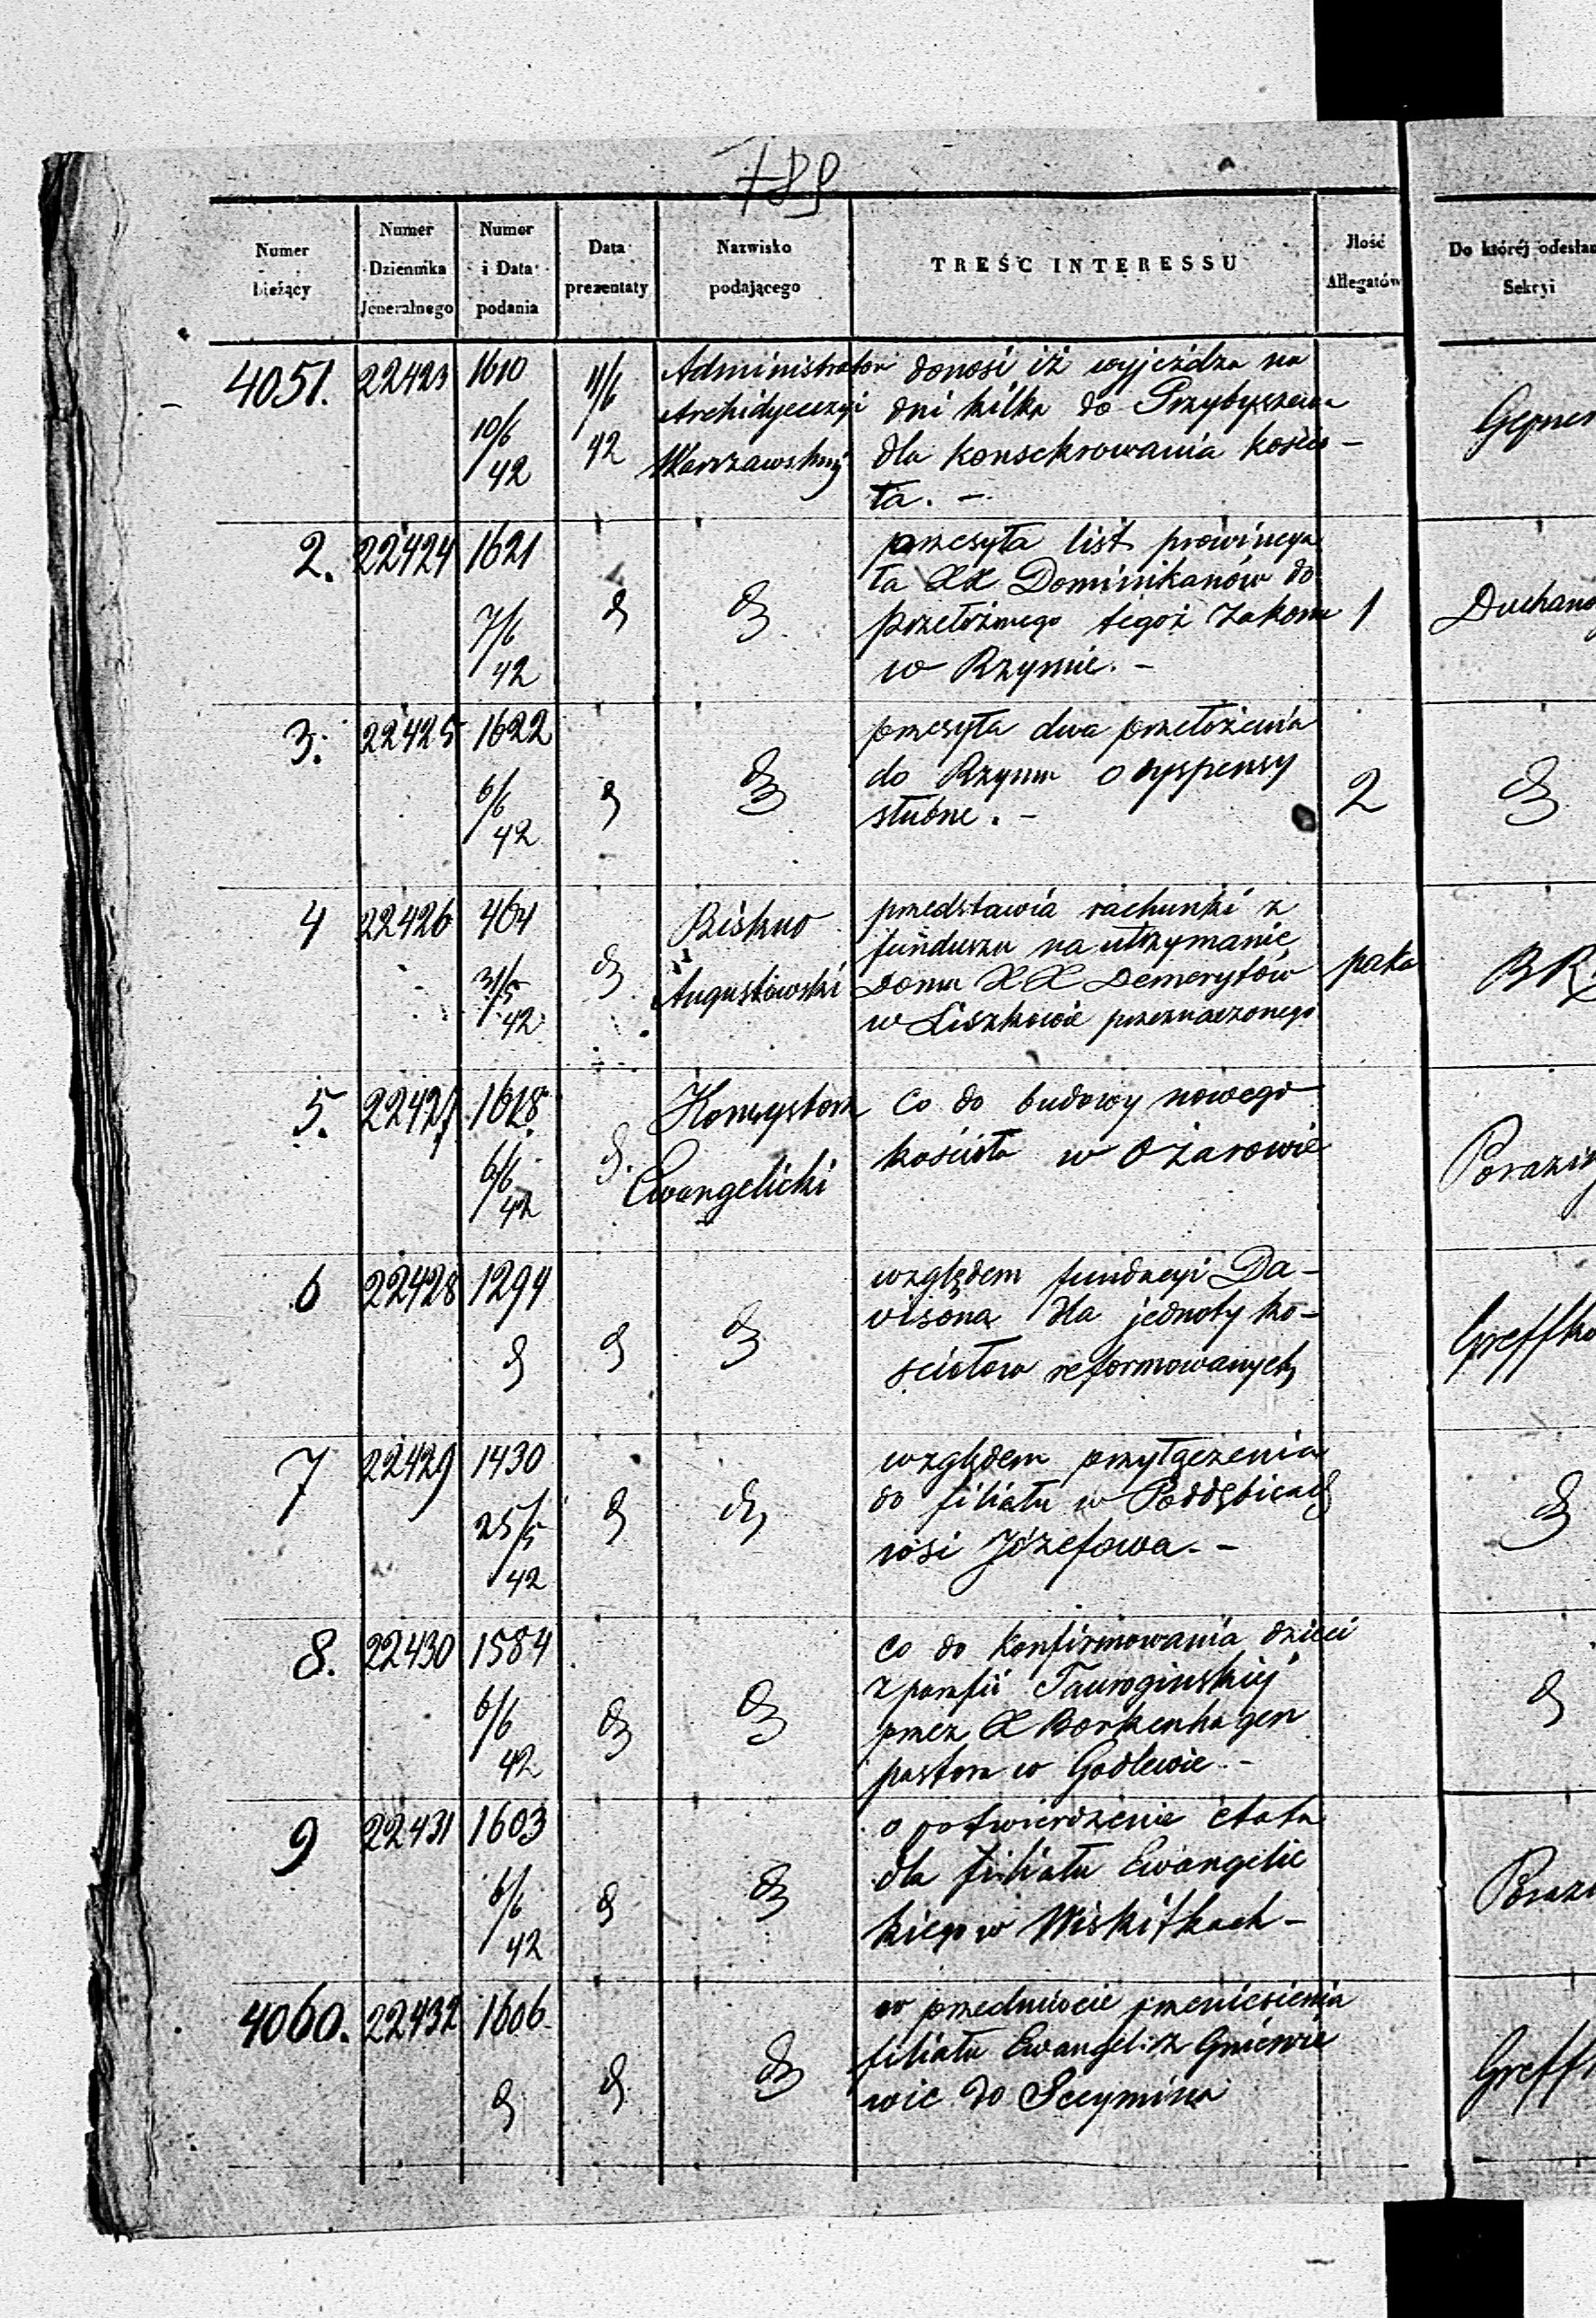 789
Numer bieżący
Numer Dziennika Jeneralnego
Numer i Data podania
Data prezentaty
Nazwisko podającego
TREŚĆ INTERESSU
Jlość Allegatów
Do któréj odesłan
Sekcyi
4051. 22423 1610 10/6 42 11/6 42
Administrator
Archidyecezyi
Warszawskiej
donosi iż wyjeżdza na
dni kilka do Przybyszewa
dla konsekrowania kościo-
ła. -
2. 22424 1621 7/6 42
przesyła list prowincya
ła XX Dominikanów do
przełożonego tegoż zakonu
w Rzymie. -
1
3. 22425 1622 6/6 42
przesyła dwa przełożenia
do Rzymu o dyspensy
słubne. -
2
4 22426 464 31/5 42
Biskup
Augustowski
przedstawia rachunki z
funduszu na utrzymanie
Domu XX Demerytów
w Liszkowie przeznaczonego
paka
BR
5. 22427 1618 6/6 42
Konsystorz
Ewangelicki
Co do budowy nowego
kościoła w Ożarowie
6 22428 1294
względem fundacyi Da-
visona dla jednoty ko-
sciołow reformowanych
7 22429 1430 25/5 42
względem przyłączenia
do filiału w Poddębicach
wsi Józefowa. -
8. 22430 1584 6/6 42
Co do konfirmowania dzieci
z parafii Tauroginskiej
przez X Borkenhagen
pastora w Godlewie. -
9 22431 1603 6/6 42
o potwierdzenie etatu
dla filiału Ewangelic
kiego w Wiskitkach -
4060. 22432 1606
w przedmiocie przeniesienia
filiału Ewangel: z Gniewie
wic do Secymina